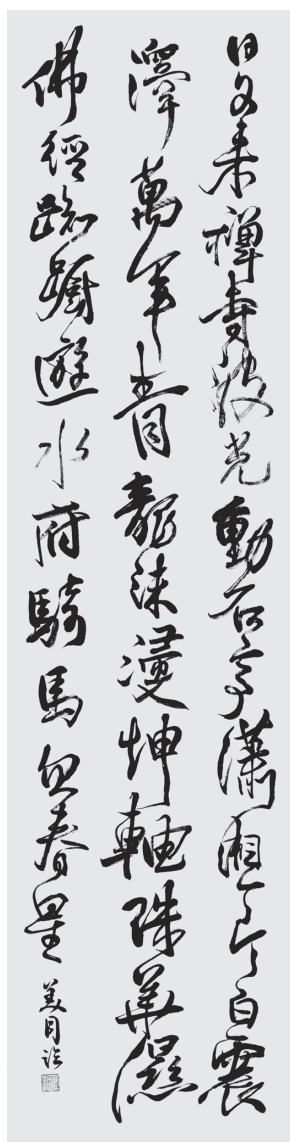 日夕来禪寺波光動石亭瀟湘片白震
澤萬年青龍沫漫坤軸珠華濕
佛經踟躕遊水府騎馬春星
美月